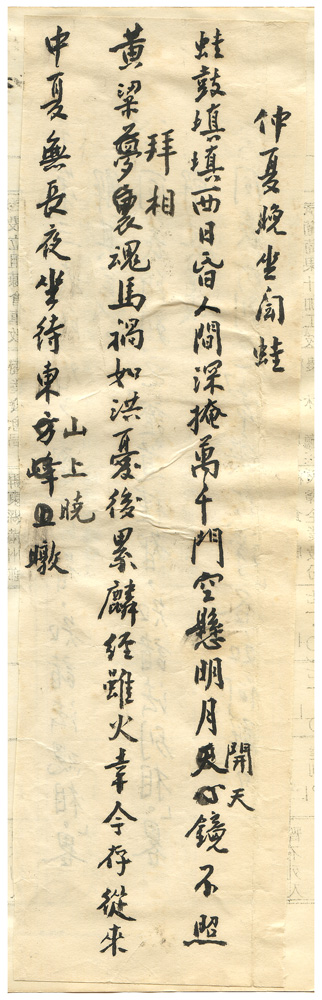 仲夏晚坐聞蛙
蛙鼓填填西日昏人間深掩萬千門空懸明月心鏡不照
開天
黃梁夢裏魂馬禍如洪憂後累麟經雖火幸今存從來
拜相
中夏無長夜坐待東方峰旦暾
山上曉